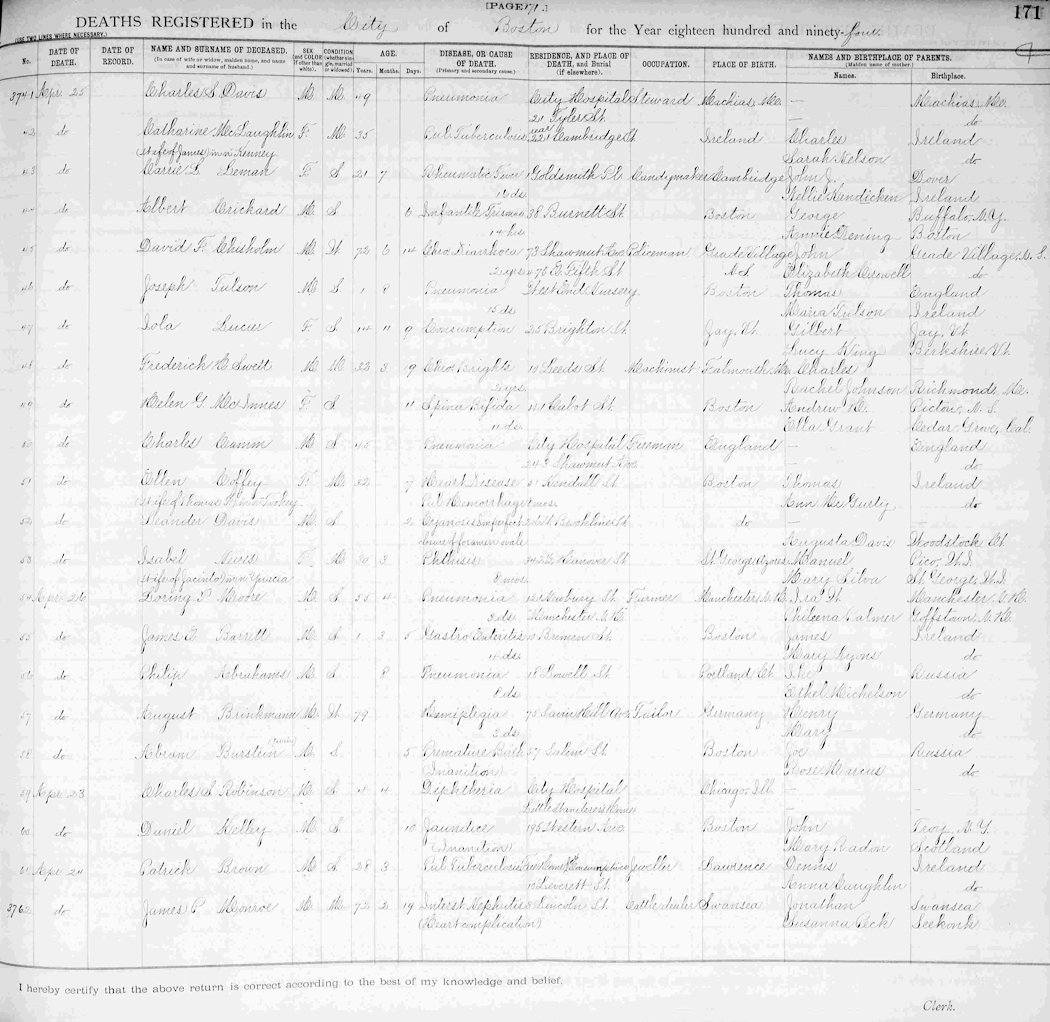 [PAGE 171.]
171
DEATHS REGISTERED in the City of Boston for the Year eighteen hundred and ninety-four.
(USE TWO LINES WHERE NECESSARY.)
No. DATE OF DEATH. DATE OF RECORD. NAME AND SURNAME OF DECEASED. (In case of wife or widow, maiden name, and name and surname of husband.) SEX (and COLOR if other than white). CONDITION (whether single, married or widowed). AGE. Years. Months. Days. DISEASE, OR CAUSE OF DEATH. (Primary and secondary cause.) RESIDENCE, AND PLACE OF DEATH, and Burial (if elsewhere). OCCUPATION. PLACE OF BIRTH. NAMES AND BIRTHPLACE OF PARENTS. (Maiden name of mother.) Names. Birthplace.
3741 Apr. 25 Charles S Davis M. M. 49 Pneumonia City Hospital Steward Machias, Me. — Machias, Me.
21 Tyler St. — do
42 do Catharine McLaughlin F. M. 35 Pul. Tuberculosis rear 221 Cambridge St Ireland Charles Ireland
(wife of James) m.n. Kenney Sarah Nelson do
43 do Carrie L Leman F. S. 21 7 Rheumatic Fever 1 Goldsmith Pl. Candymaker Cambridge John J. Dover
16 ds. Nellie Ireland
44 do Albert Crichard M. S. 6 Infantile 38 Burnett St. Boston George Buffalo, N.Y.
14 hrs. Annie Boston
45 do David F. Chisholm M. W. 72 6 14 Chro. Diarrhoea 73 Shawmut Ave Policeman Village John Village, N.S.
2 yrs 476 E. Fifth St N S Elizabeth do
46 do Joseph Tulson M. S. 1 8 Pneumonia West End Nursery Boston Thomas England
15 ds. Maria Tulson Ireland
47 do Iola Lucier F. S. 14 11 9 Consumption 25 Brighton St. Jay, Vt. Gilbert Jay, Vt.
Lucy King Berkshire, Vt.
48 do Frederick E. Swett M. M. 32 3 19 Chro. Brights 10 Leeds St. Machinist Falmouth, Me. Charles
2 yrs. Rachel Johnson Richmond, Me.
49 do Helen G. McInnes F. S. 11 Spina Bifida 121 Cabot St. Boston Andrew Pictou, N.S.
11 ds. Ella Grant Cedar Grove, Cal.
50 do Charles Camm M. S. 45 Pneumonia City Hospital Fireman England — England
243 Shawmut Ave. — do
51 do Ellen Coffey F. M. 32 7 Heart Disease 51 Kendall St. Boston Thomas Ireland
wife of Thomas F. m.n. Pul. Hemorrhage 7 mos. Ann McGurty do
52 do Leander Davis M. S. 2 Cyanosis Imperfect Brookline St do — —
closure of foramen ovale Augusta Davis Woodstock, Ct.
53 do Isabel F. M. 30 3 Phthisis Hanover St St. George Azores Manuel Pico, W.I.
(wife of Jacinto) m.n. 8 mos. Mary Silva St. George, W.I.
54 Apr. 26 Loring P. Moore M. S. 55 4 Pneumonia 121 Asbury St. Farmer Manchester, N.H. Ira W. Manchester, N.H.
3 ds. Manchester N.H. Phileena Palmer Goffstown, N.H.
55 do James E. Barrett M. S. 1 3 5 Gastro Enteritis Bremen St. Boston James Ireland
14 ds. Mary Lyons do
56 do Philip Abrahams M. S. 8 Pneumonia 18 Lowell St. Portland Ct. Russia
8 ds. Ethel Michelson do
57 do August Brinkmann M. W. 79 Hemiplegia 75 Savin Hill Ave Tailor Germany Henry Germany
3 ds. Mary do
58 do Abram Burstein (twin) M. S. 5 Premature Birth 57 Salem St. Boston Joe Russia
(Inanition) Rose Marcus do
59 Apr. 23 Charles S. Robinson M. S. 4 4 Diphtheria City Hospital Chicago, Ill. — —
Little Wanderers Home — —
60 do Daniel Kelley M. S. 10 Jaundice 195 Western Ave Boston John Troy, N.Y.
(Inanition) Mary Scotland
61 Apr. 24 Patrick Brown M. S. 28 3 Pul. Tuberculosis Consumptives Jeweller Lawrence Dennis Ireland
Leverett St. Anna Coughlin do
3762 do James P Monroe M. M. 72 2 19 Interst. Nephritis Lincoln St. Cattle dealer Swansea Jonathan Swansea
(Heart complication) Susanna Peck Seekonk
I hereby certify that the above return is correct according to the best of my knowledge and belief.
Clerk.